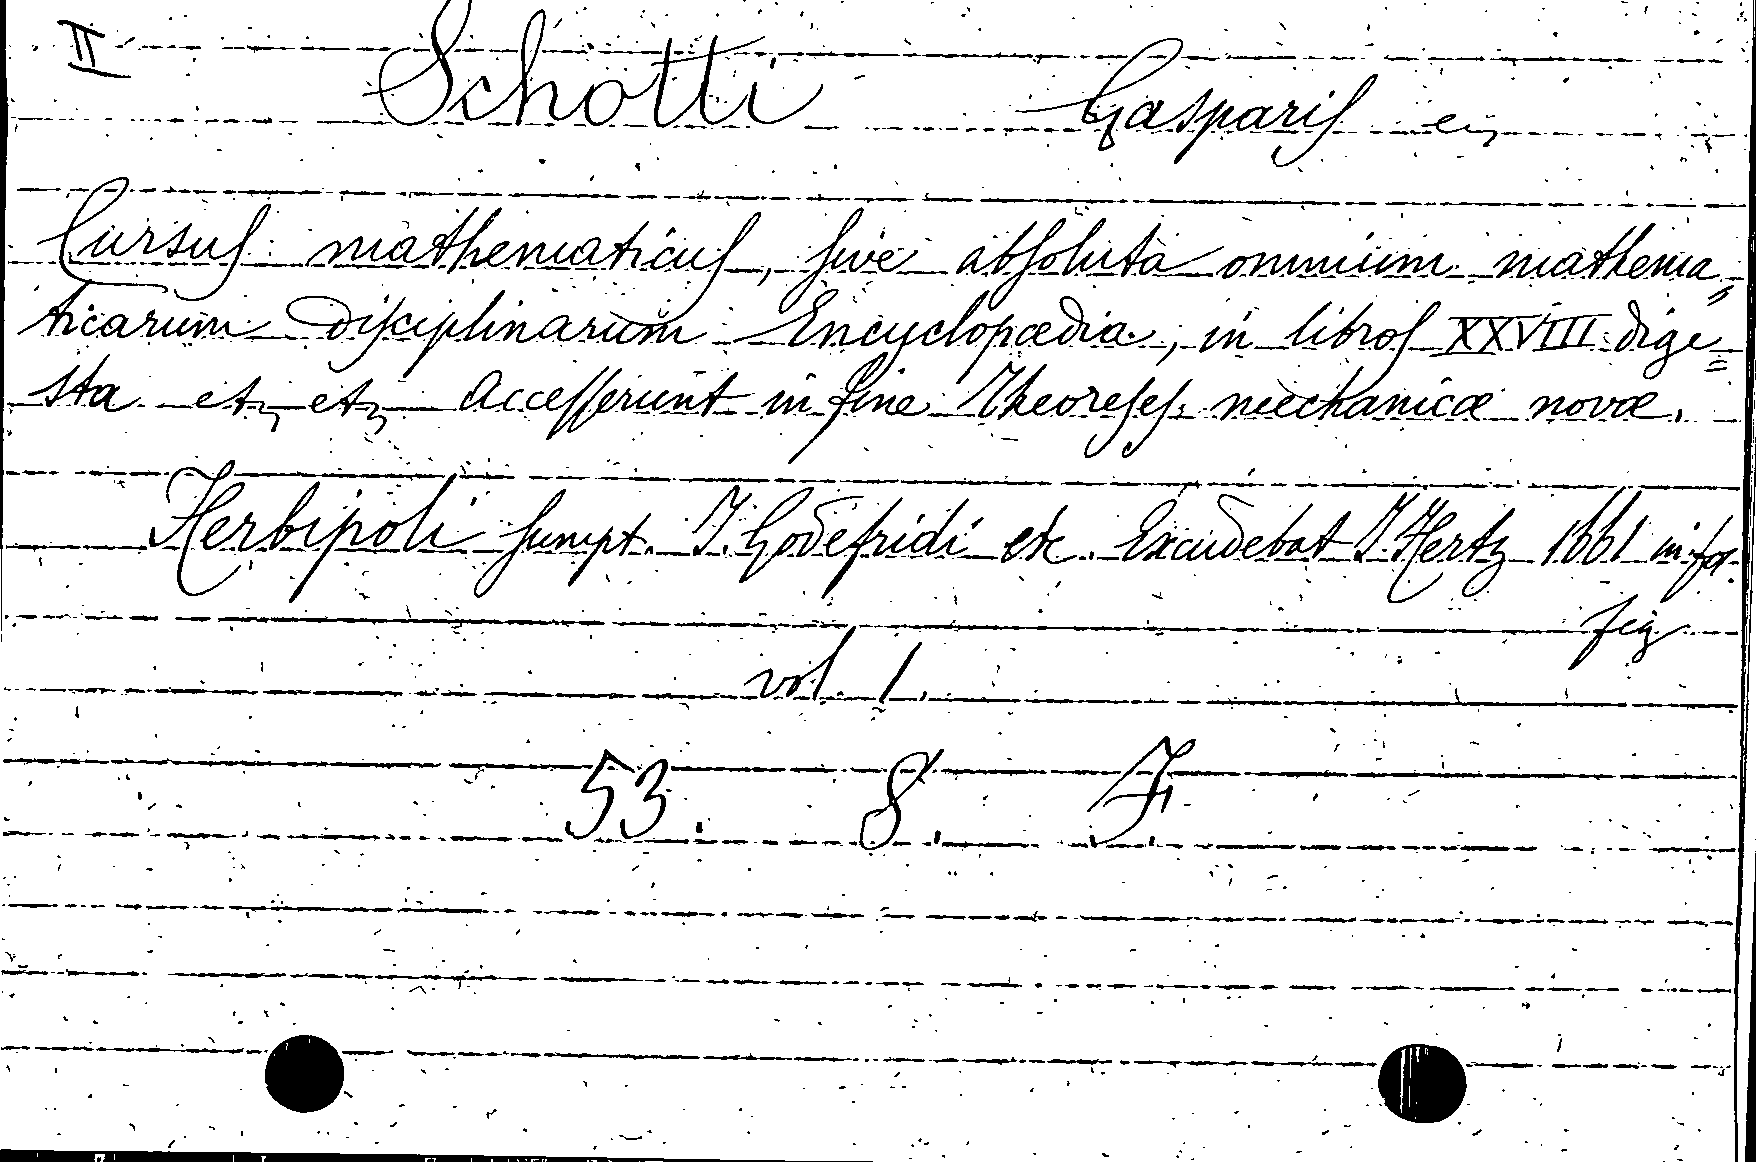 II Schotti Gasparis ej
Cursus mathematicus, sive absoluta omnium mathema=
ticarum disciplinarum Encyclopædia, in libros XXVIII dige=
sta etc etc Accesserunt in fine Theoreses mechanicæ novæ.
Herbipoli sumpt. J. Godefridi etc. Excudebat J. Hertz 1661 in fol.
fig
vol. 1.
53. 8. F.